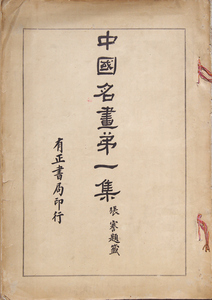 中國名畫第一集
張謇題簽
有正書局印行